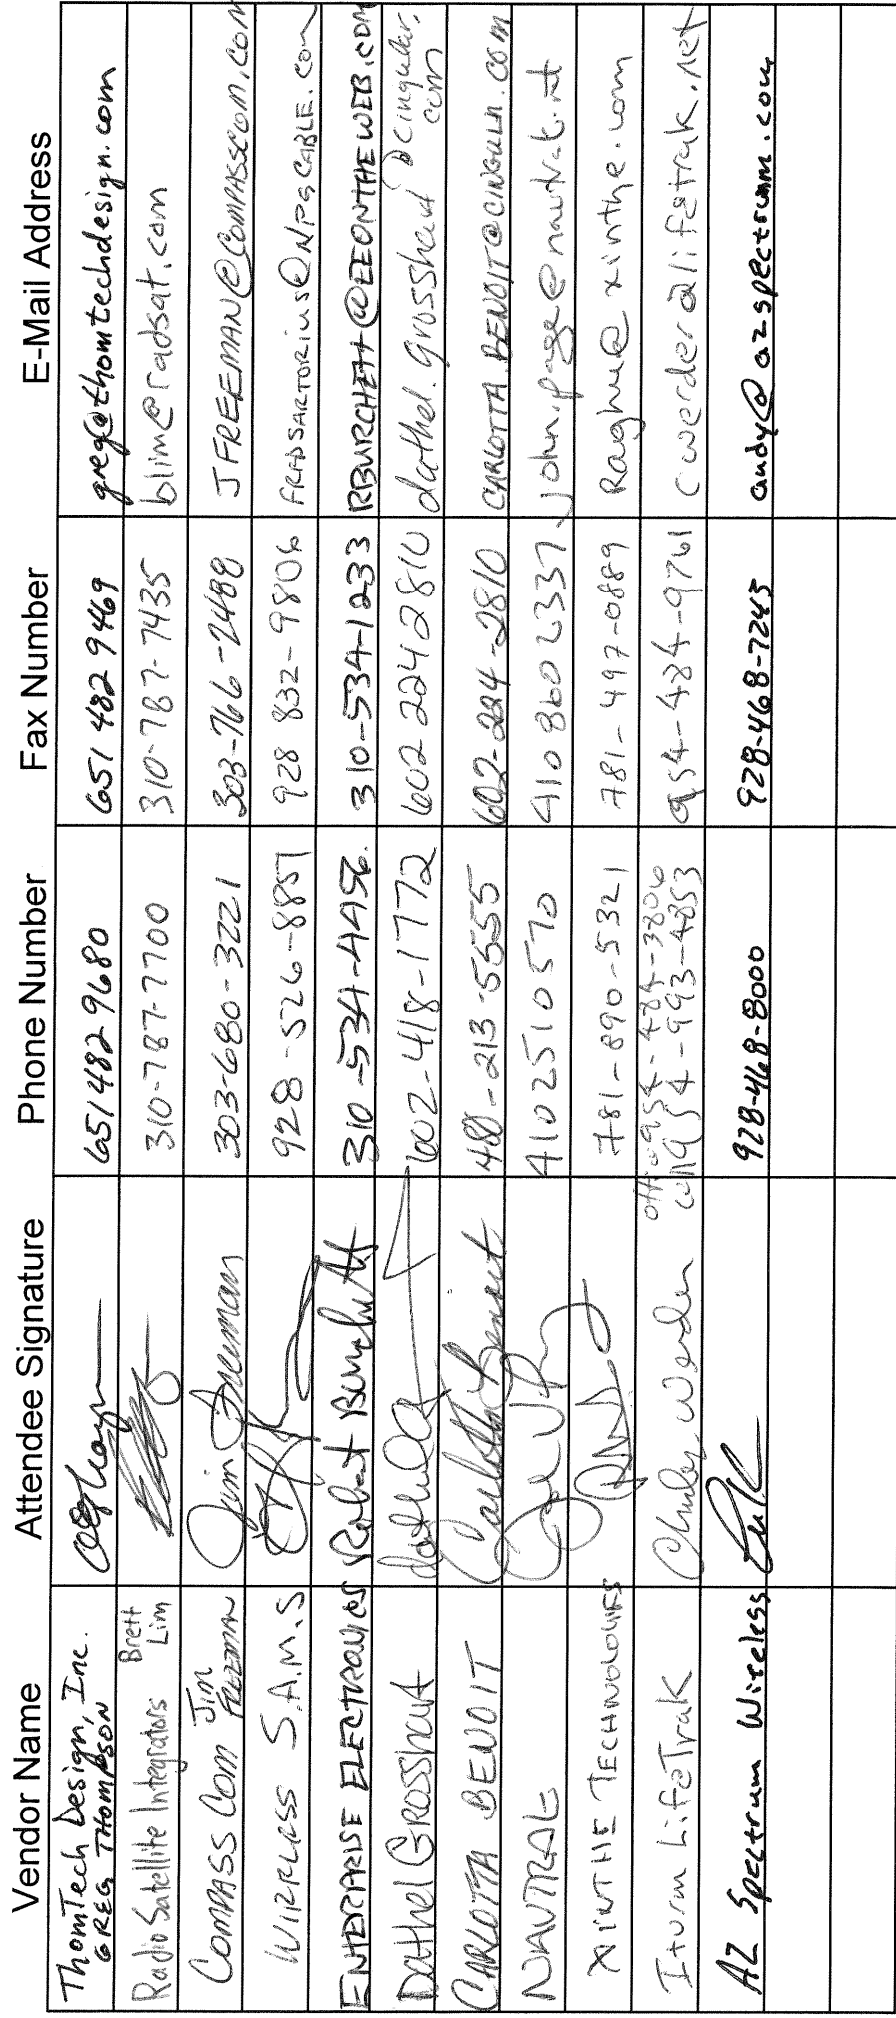 Vendor Name Attendee Signature Phone Number Fax Number E-Mail Address
ThomTech Design, Inc.
GREG THOMPSON 651 482 9680 651 482 9469 greg@thomtechdesign.com
Radio Satellite Integrators Brett Lim 310-787-7700 310-787-7435 blim@radsat.com
COMPASS COM Jim FREEMAN Jim Freeman 303-680-3221 303-766-2488 JFREEMAN@COMPASSCOM.COM
WIRELESS S.A.M.S 928-526-8857 928 832-9806 FREDSARTORIUS@NPGCABLE.COM
ENTERPRISE ELECTRONICS Robert Burchett 310-534-4456 310-534-1233 RBURCHETT@EEONTHEWEB.COM
Dathel Grosshart 602-418-1772 602 224 2810 dathel.grosshart@cingular.
com
CARLOTTA BENOIT Carlotta Benoit 480-213-5555 602-224-2810 CARLOTTA.BENOIT@CINGULR.COM
NAVTRAK 4102510570 410 860 2337 john.page@navtrak.net
XINTHE TECHNOLOGIES 781-890-5321 781-497-0889 Raghu@xinthe.com
Iturm LifeTrak Werder office 954-484-3806
cell 954-993-4853 954-484-9761 cwerder@lifetrak.net
AZ Spectrum Wireless 928-468-8000 928-468-7245 andy@azspectrumm.com